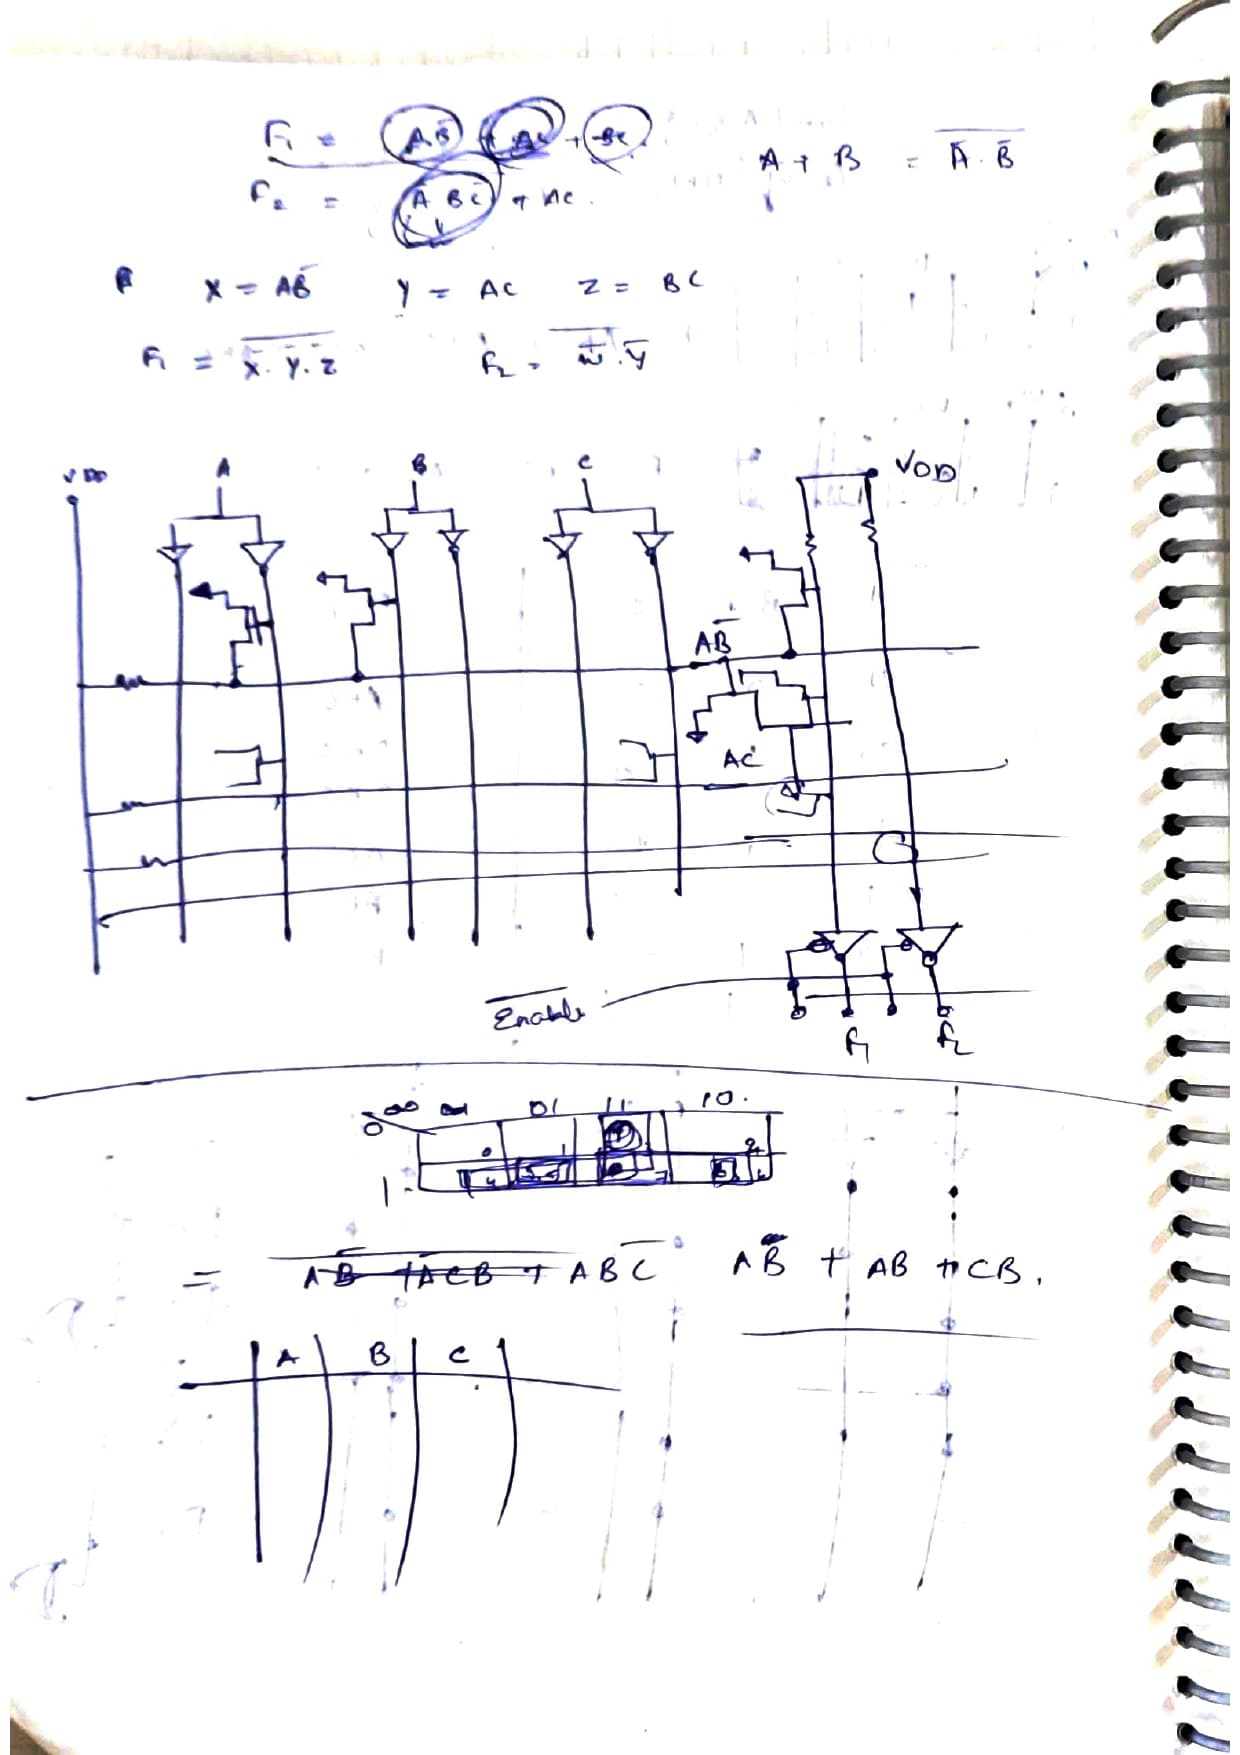 F₁ = AB̅ + AC + BC.
A + B = \overline{A̅ . B̅}
F₂ = A BC̅ + AC .
X = AB̅ Y = AC Z = BC
F₁ = \overline{X̅ . Y̅ . Z̅} F₂ = \overline{W̅ . Y̅}
VDD A B C VDD
AB̅
AC
\overline{Enable}
F₁ F₂
00 01 11 10 .
0
1
= AB̅ + ACB + ABC̅ AB̅ + AB + CB .
A B C